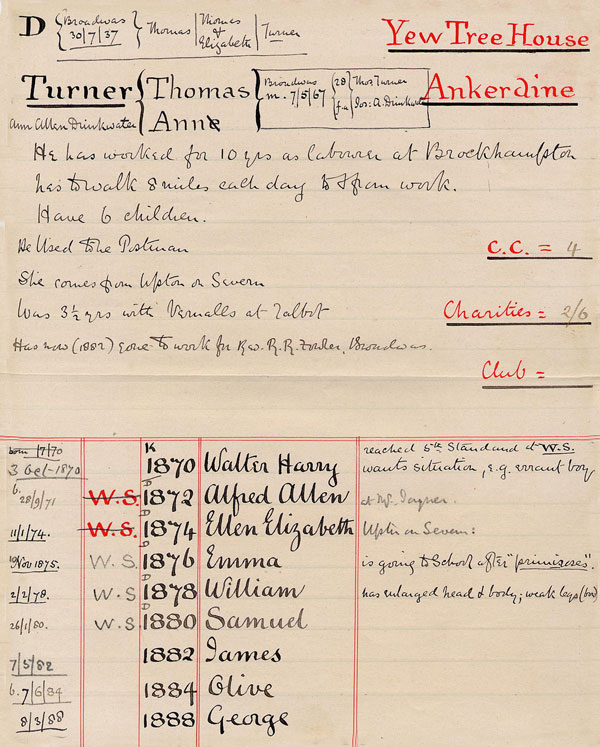 D { Broadwas 30/7/37 } Thomas | Thomas & Elizabeth | Turner
Yew Tree House
Turner { Thomas Ann
Broadwas m. 7/5/67 { 28 f.a } Thos Turner Jos: A. Drinkwater
Ankerdine
Ann Allen Drinkwater
He has worked for 10 yrs as labourer at Brockhampton
has to walk 8 miles each day to & from work.
Have 6 children.
He Used to be Postman
C.C. = 4
She comes from Upton on Severn
Was 3½ yrs with Vernalls at Talbot
Charities = 2/6
Has now (1882) gone to work for Rev. R. R. Broadwas.
Club =
born /7/70
3 Oct - 1870 K 1870 Walter Harry reached 5th Standard at W.S.
wants situation, e.g. errant boy
b. 28/9/71 W.S. D 1872 Alfred Allen at Mr.
11/1/74. W.S. D 1874 Ellen Elizabeth Upton on Severn:
19 Nov 1875. W.S. D 1876 Emma is going to School after "primroses".
2/2/78. W.S D 1878 William has enlarged head & body; weak legs
26/1/80. W.S. D 1880 Samuel
7/5/82 1882 James
b. 7/6/84 1884 Olive
8/3/88 1888 George